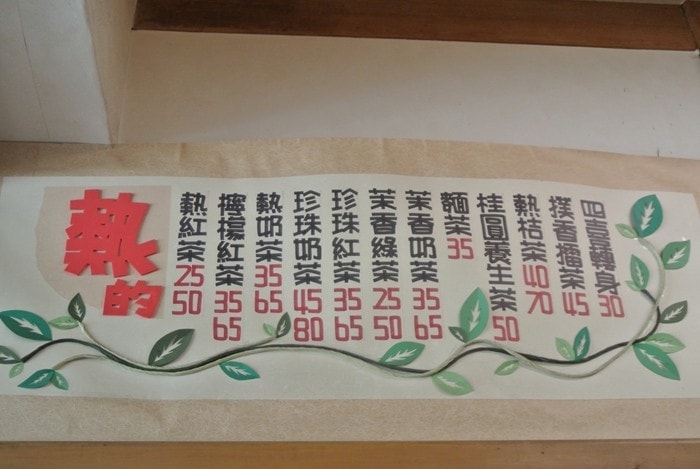 熱的
熱紅茶 25 50
檸檬紅茶 35 65
熱奶茶 35 65
珍珠奶茶 45 80
珍珠紅茶 35 65
茉香綠茶 25 50
茉香奶茶 35 65
麵茶 35
桂圓養生茶 50
熱桔茶 40 70
撲香擂茶 45
四喜轉身 30